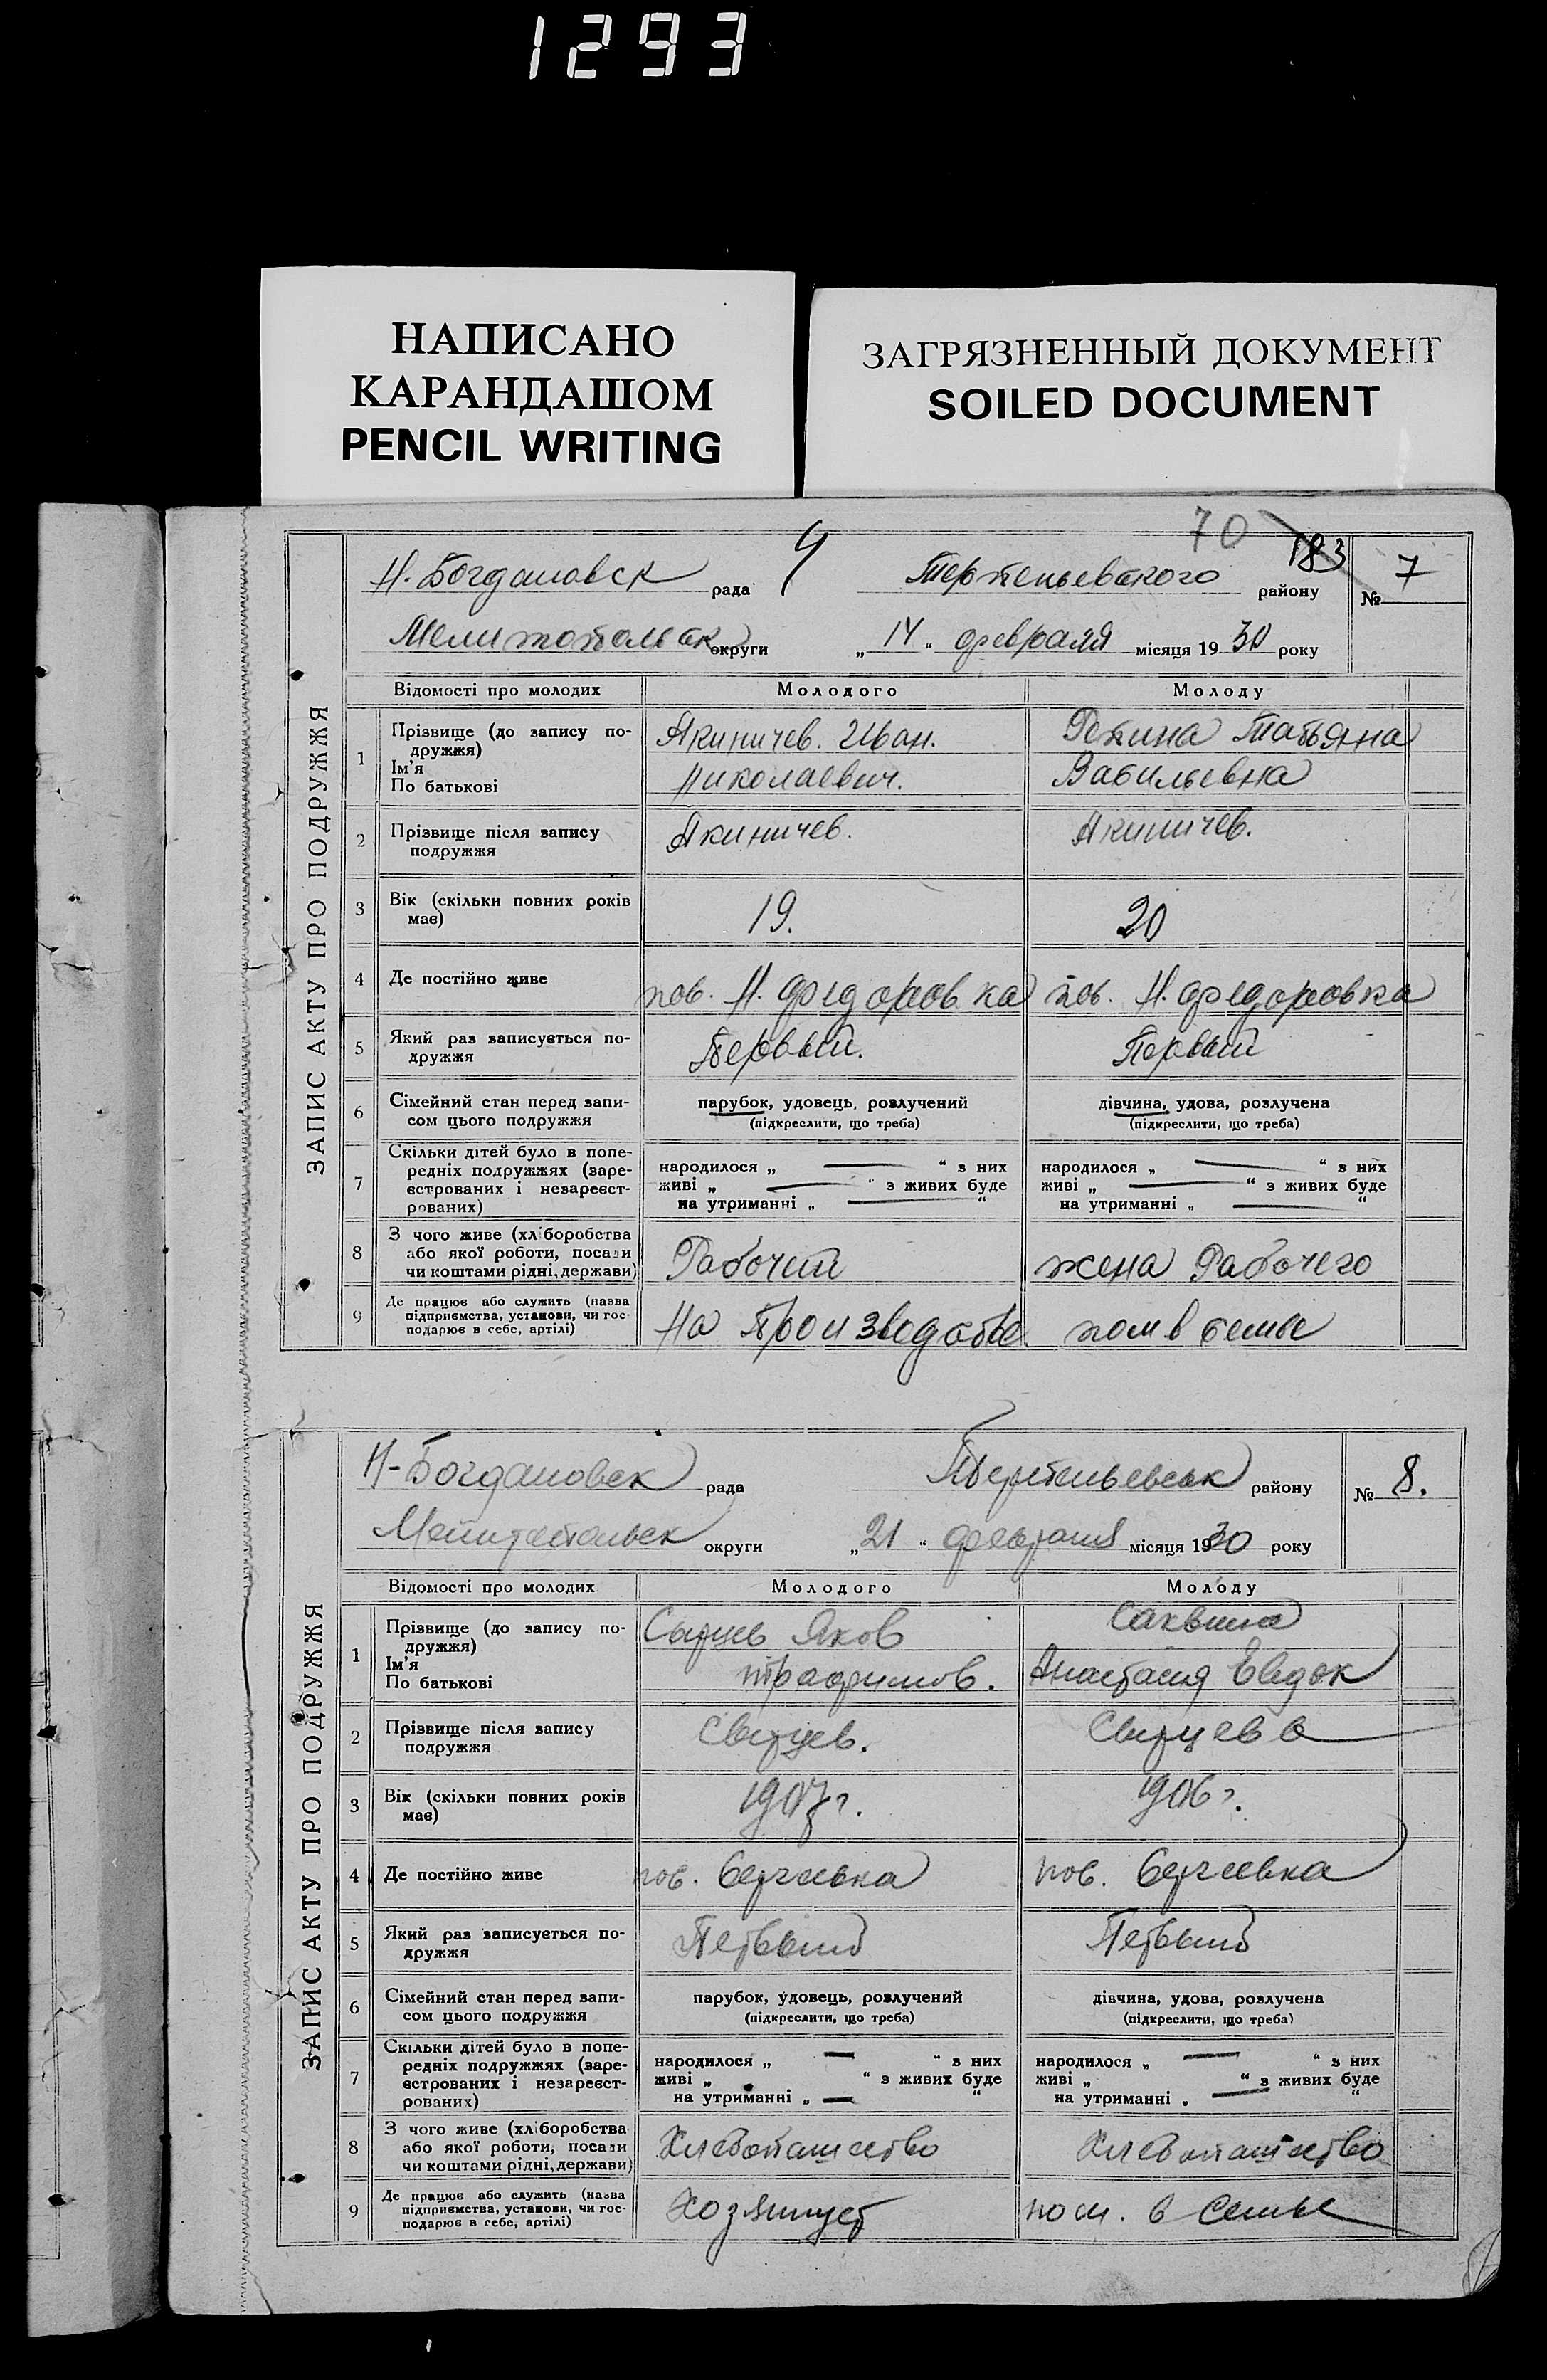 1293
НАПИСАНО
КАРАНДАШОМ
PENCIL WRITING
ЗАГРЯЗНЕННЫЙ ДОКУМЕНТ
SOILED DOCUMENT
70 183
ЗАПИС АКТУ ПРО ПОДРУЖЖЯ
Н. Богдановск рада Терпеньевского району № 7
Мелитопольск округи „14“ февраля місяця 1930 року
Відомості про молодих Молодого Молоду
1 Прізвище (до запису по-
дружжя)
Ім'я
По батькові
Якиничев. Иван.
Николаевич.
Репина Татьяна
Васильевна
2 Прізвище після запису
подружжя
Якиничев. Якиничев.
3 Вік (скільки повних років
має)
19. 20
4 Де постійно живе пов. Н. Федоровка пов. Н. Федоровка
5 Який раз записується по-
дружжя
Первый. Первый
6 Сімейний стан перед запи-
сом цього подружжя
парубок, удовець, розлучений
(підкреслити, що треба)
дівчина, удова, розлучена
(підкреслити, що треба)
7 Скільки дітей було в попе-
редніх подружжях (заре-
єстрованих і незареєст-
рованих)
народилося „ — “ з них
живі „ — “ з живих буде
на утриманні „ — “
народилося „ — “ з них
живі „ — “ з живих буде
на утриманні „ — “
8 З чого живе (хліборобства
або якої роботи, посади
чи коштами рідні, держави)
Рабочий жена Рабочего
9 Де працює або служить (назва
підприємства, установи, чи гос-
подарює в себе, артілі)
На Производстве пом в семье
ЗАПИС АКТУ ПРО ПОДРУЖЖЯ
Н-Богдановск рада Терпеньевськ району № 8.
Мелитопольск округи „21“ февраля місяця 1930 року
Відомості про молодих Молодого Молоду
1 Прізвище (до запису по-
дружжя)
Ім'я
По батькові
Яков
Трофимов.
Саквина
Анастасия Евдок
2 Прізвище після запису
подружжя
3 Вік (скільки повних років
має)
1907 г. 1906 г.
4 Де постійно живе пов. Сергеевка пов. Сергеевка
5 Який раз записується по-
дружжя
Первый Первый
6 Сімейний стан перед запи-
сом цього подружжя
парубок, удовець, розлучений
(підкреслити, що треба)
дівчина, удова, розлучена
(підкреслити, що треба)
7 Скільки дітей було в попе-
редніх подружжях (заре-
єстрованих і незареєст-
рованих)
народилося „ — “ з них
живі „ “ з живих буде
на утриманні „ — “
народилося „ — “ з них
живі „ “ з живих буде
на утриманні „ — “
8 З чого живе (хліборобства
або якої роботи, посади
чи коштами рідні, держави)
Хлебопашество Хлебопашество
9 Де працює або служить (назва
підприємства, установи, чи гос-
подарює в себе, артілі)
Хозяинует пом. в семье